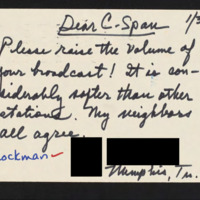 Dear C-Span 1/3
Please raise the volume of
your broadcast! It is con-
siderably softer than other
stations. My neighbors
all agree.
ockman
Memphis, Tn.